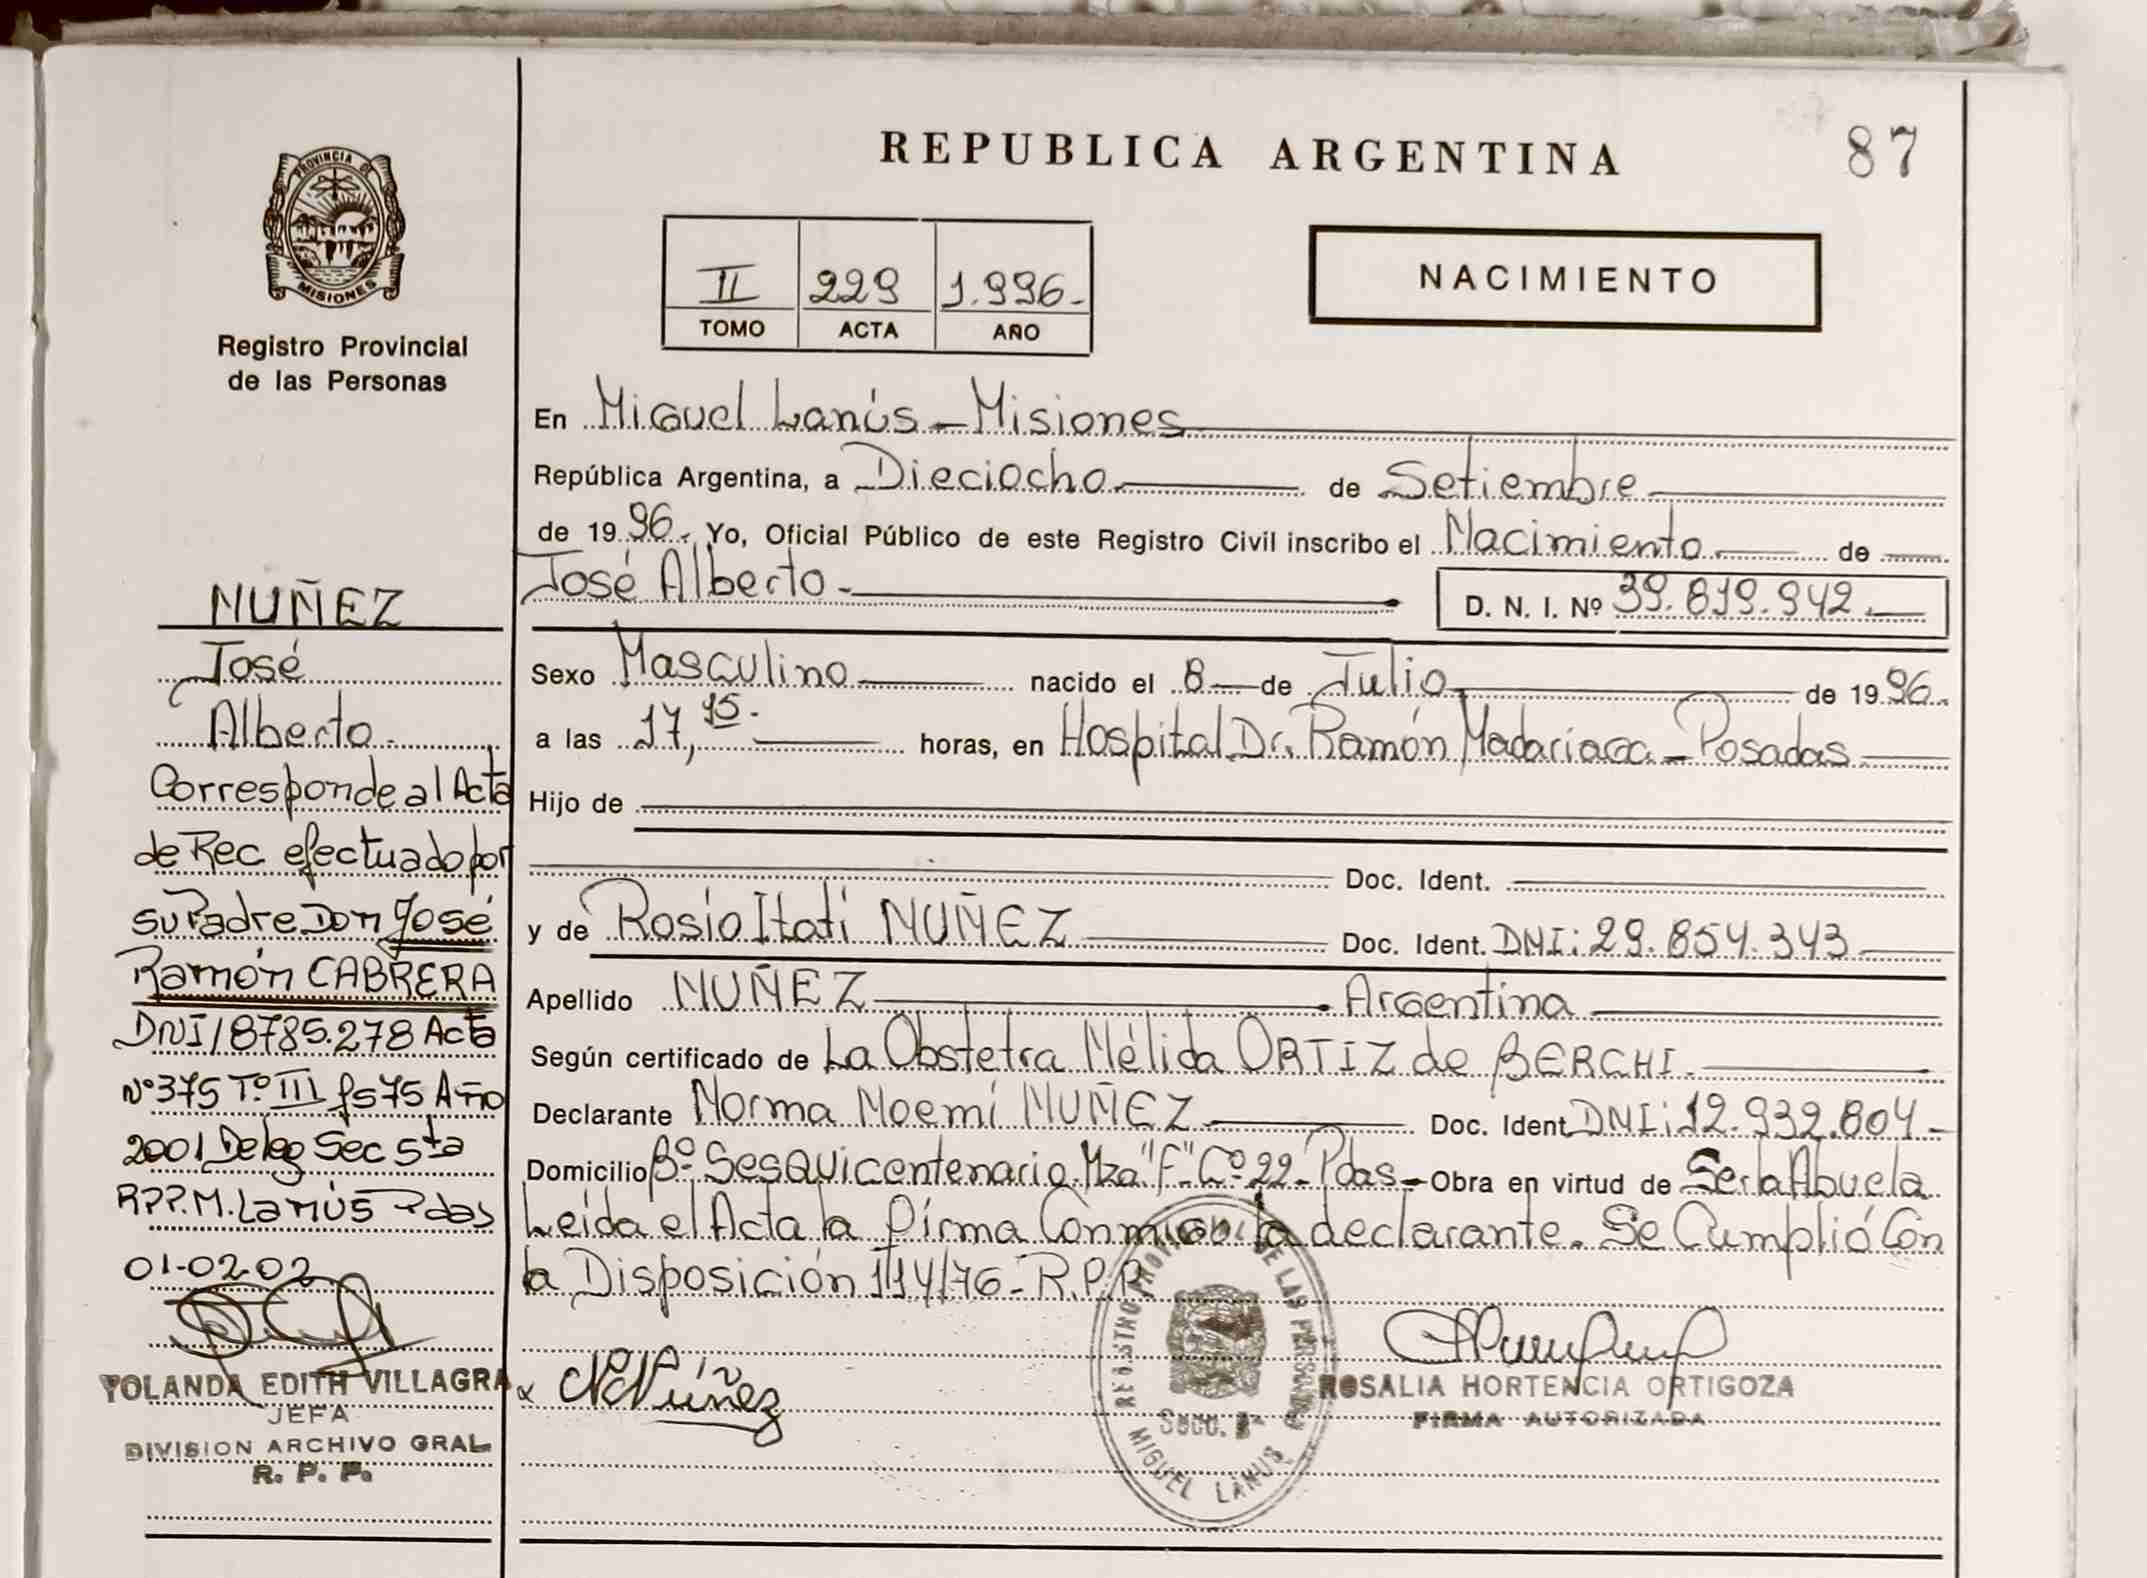 REPUBLICA ARGENTINA
87
PROVINCIA DE
MISIONES
Registro Provincial
de las Personas
II 229 1.996.-
TOMO ACTA AÑO
NACIMIENTO
En Miguel Lanús - Misiones
República Argentina, a Dieciocho de Setiembre
de 1996. Yo, Oficial Público de este Registro Civil inscribo el Nacimiento de
José Alberto.-
D. N. I. Nº 39.819.942.
Sexo Masculino nacido el 8 de Julio de 1996.
a las 17,15.- horas, en Hospital Dr. Ramón Madariaga - Posadas.
Hijo de
Doc. Ident.
y de Rosio Itati NUÑEZ Doc. Ident. DNI: 29.854.343
Apellido NUÑEZ Argentina
Según certificado de La Obstetra Nélida ORTIZ de BERCHI.
Declarante Norma Noemí NUÑEZ Doc. Ident. DNI: 12.932.804-
Domicilio Bº Sesquicentenario. Mza "F" Cº 22 - Pdas. - Obra en virtud de Ser la Abuela
Leída el Acta la firma Conmigo la declarante. Se Cumplió Con
la Disposición 114/76 - R.P.P.
NUÑEZ
José
Alberto.-
Corresponde al Acta
de Rec. efectuado por
su Padre Don José
Ramón CABRERA
DNI 18785.278 Acta
Nº 375 Tº III fs 75 Año
2001 Deleg Sec 5ta
R.P.P. M. Lanús Pdas
01-02-02
YOLANDA EDITH VILLAGRA
JEFA
DIVISION ARCHIVO GRAL.
R. P. P.
N Núñez
REGISTRO PROVINCIAL DE LAS PERSONAS
MIGUEL LANUS
ROSALIA HORTENCIA ORTIGOZA
FIRMA AUTORIZADA